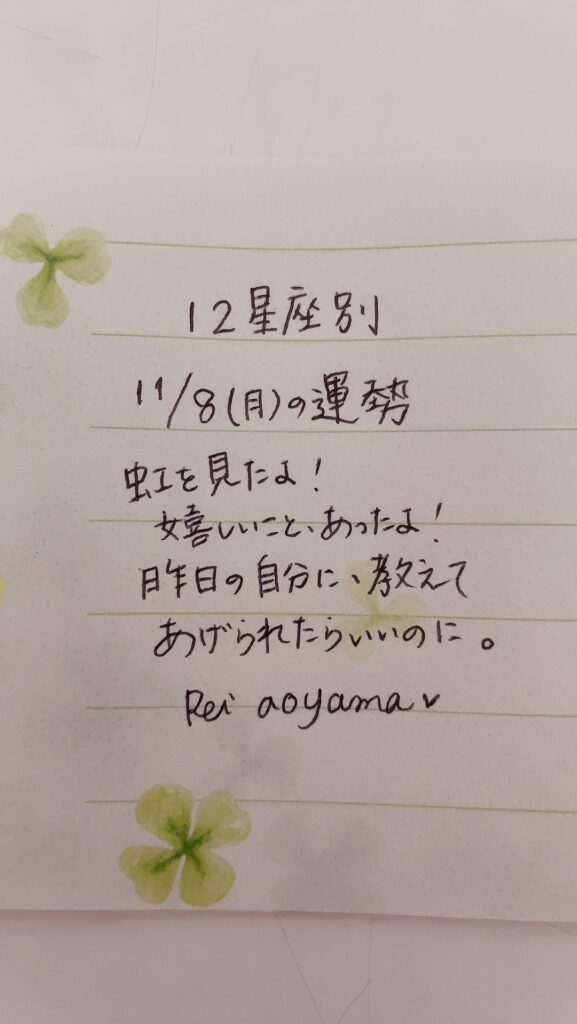 12星座別
11/8(月)の運勢
虹を見たよ!
嬉しいこと、あったよ!
昨日の自分に、教えて
あげられたらいいのに。
Rei aoyama♥